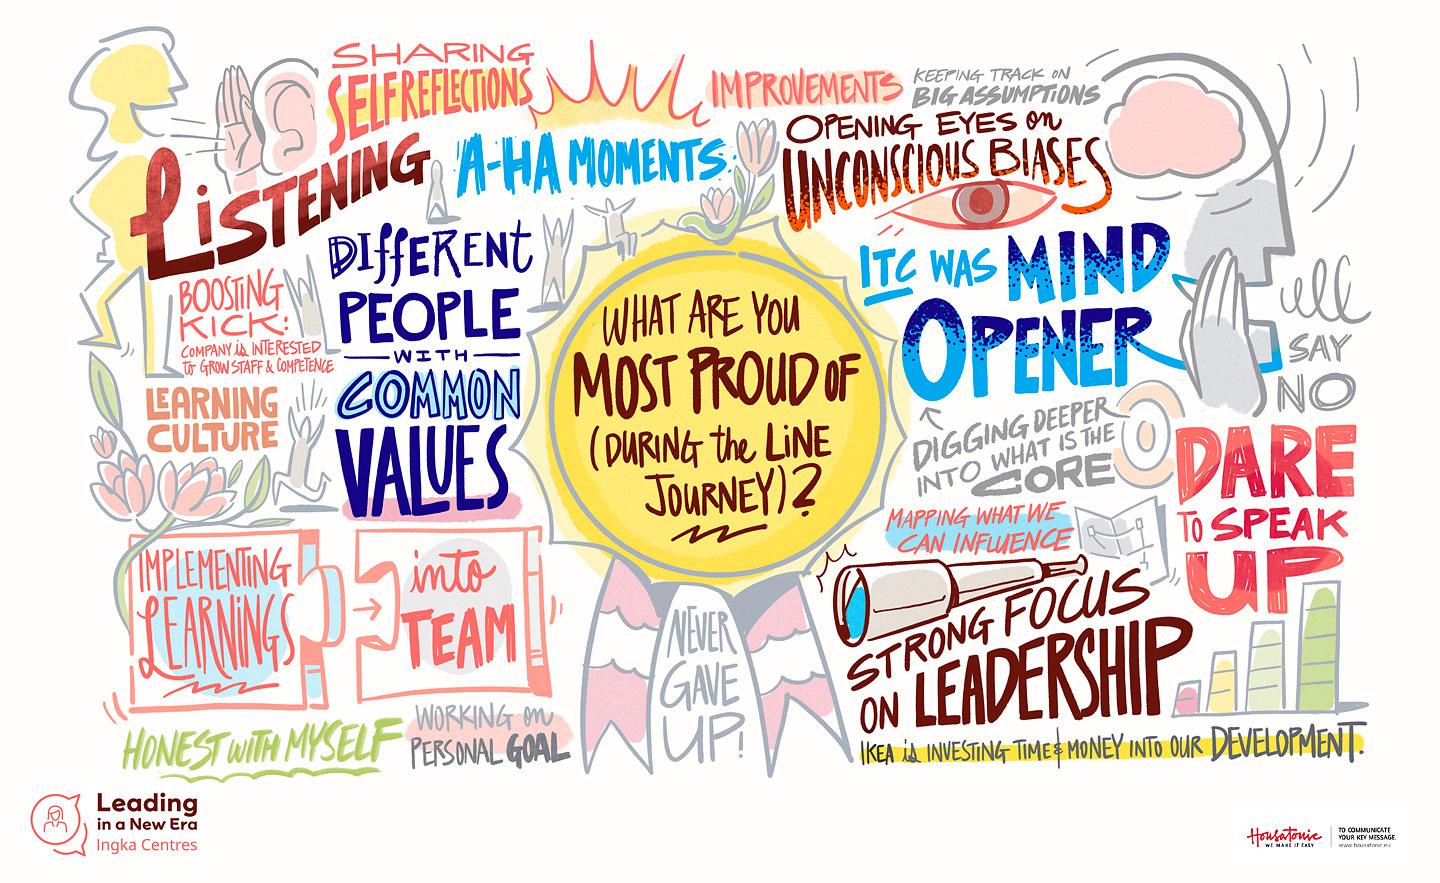 SHARING
SELF REFLECTIONS
LISTENING
A-HA MOMENTS
IMPROVEMENTS
KEEPING TRACK ON
BIG ASSUMPTIONS
OPENING EYES on
UNCONSCIOUS BIASES
BOOSTING
KICK:
COMPANY is INTERESTED
to GROW STAFF & COMPETENCE
LEARNING
CULTURE
DIffERENT
PEOPLE
WITH
COMMON
VALUES
WHAT ARE YOU
MOST PROUD OF
(DURING the LiNE
JOURNEY)?
NEVER
GAVE
UP!
ITC WAS MIND
OPENER
SAY
NO
DIGGING DEEPER
INTO WHAT IS THE
CORE
DARE
TO SPEAK
UP
MAPPING WHAT WE
CAN INFLUENCE
STRONG FOCUS
ON LEADERSHIP
IMPLEMENTING
LEARNiNGS
into
TEAM
HONEST WITH MYSELF
WORKING on
PERSONAL GOAL
IKEA is INVESTING TIME & MONEY INTO OUR DEVELOPMENT.
Leading
in a New Era
Ingka Centres
Housatonic
WE MAKE IT EASY
TO COMMUNICATE
YOUR KEY MESSAGE.
www.housatonic.eu